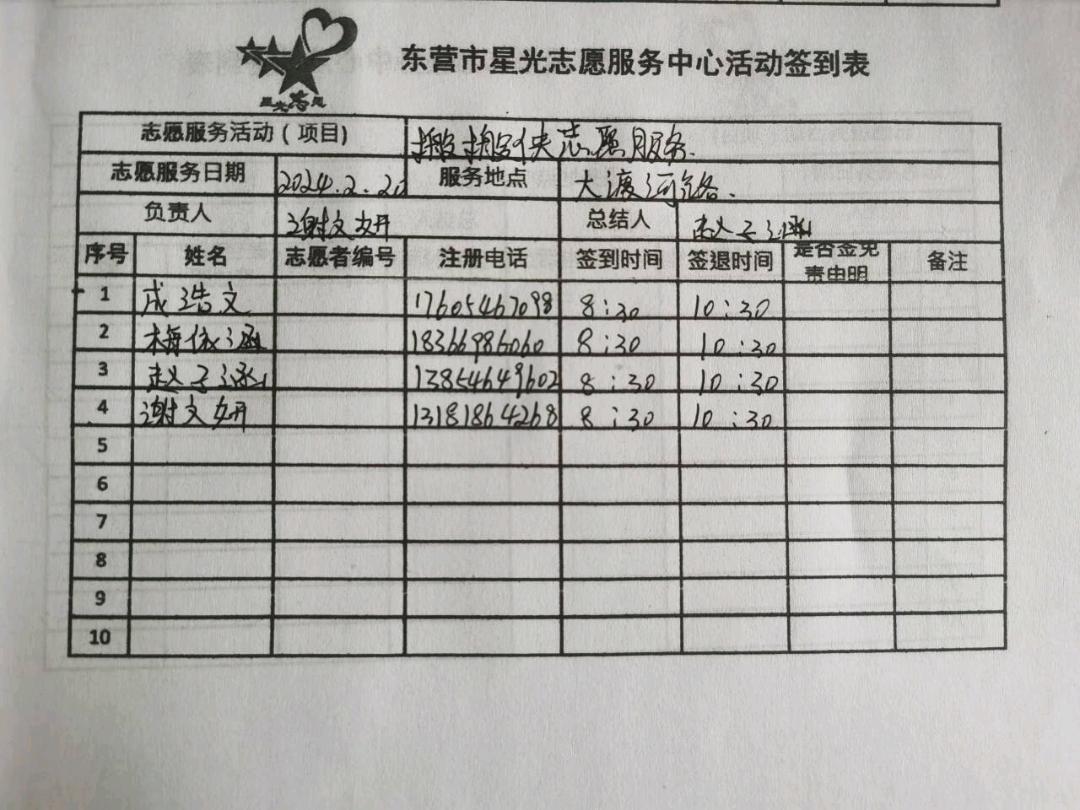 星光志愿
东营市星光志愿服务中心活动签到表
志愿服务活动（项目） 搬搬侠志愿服务.
志愿服务日期 2024.2.20 服务地点 大渡河路.
负责人 谢文妍 总结人 赵子涵
序号 姓名 志愿者编号 注册电话 签到时间 签退时间 是否签免责申明 备注
1 成浩文 17605467098 8:30 10:30
2 梅依涵 18366986060 8:30 10:30
3 赵子涵 13854649602 8:30 10:30
4 谢文妍 13181864268 8:30 10:30
5
6
7
8
9
10